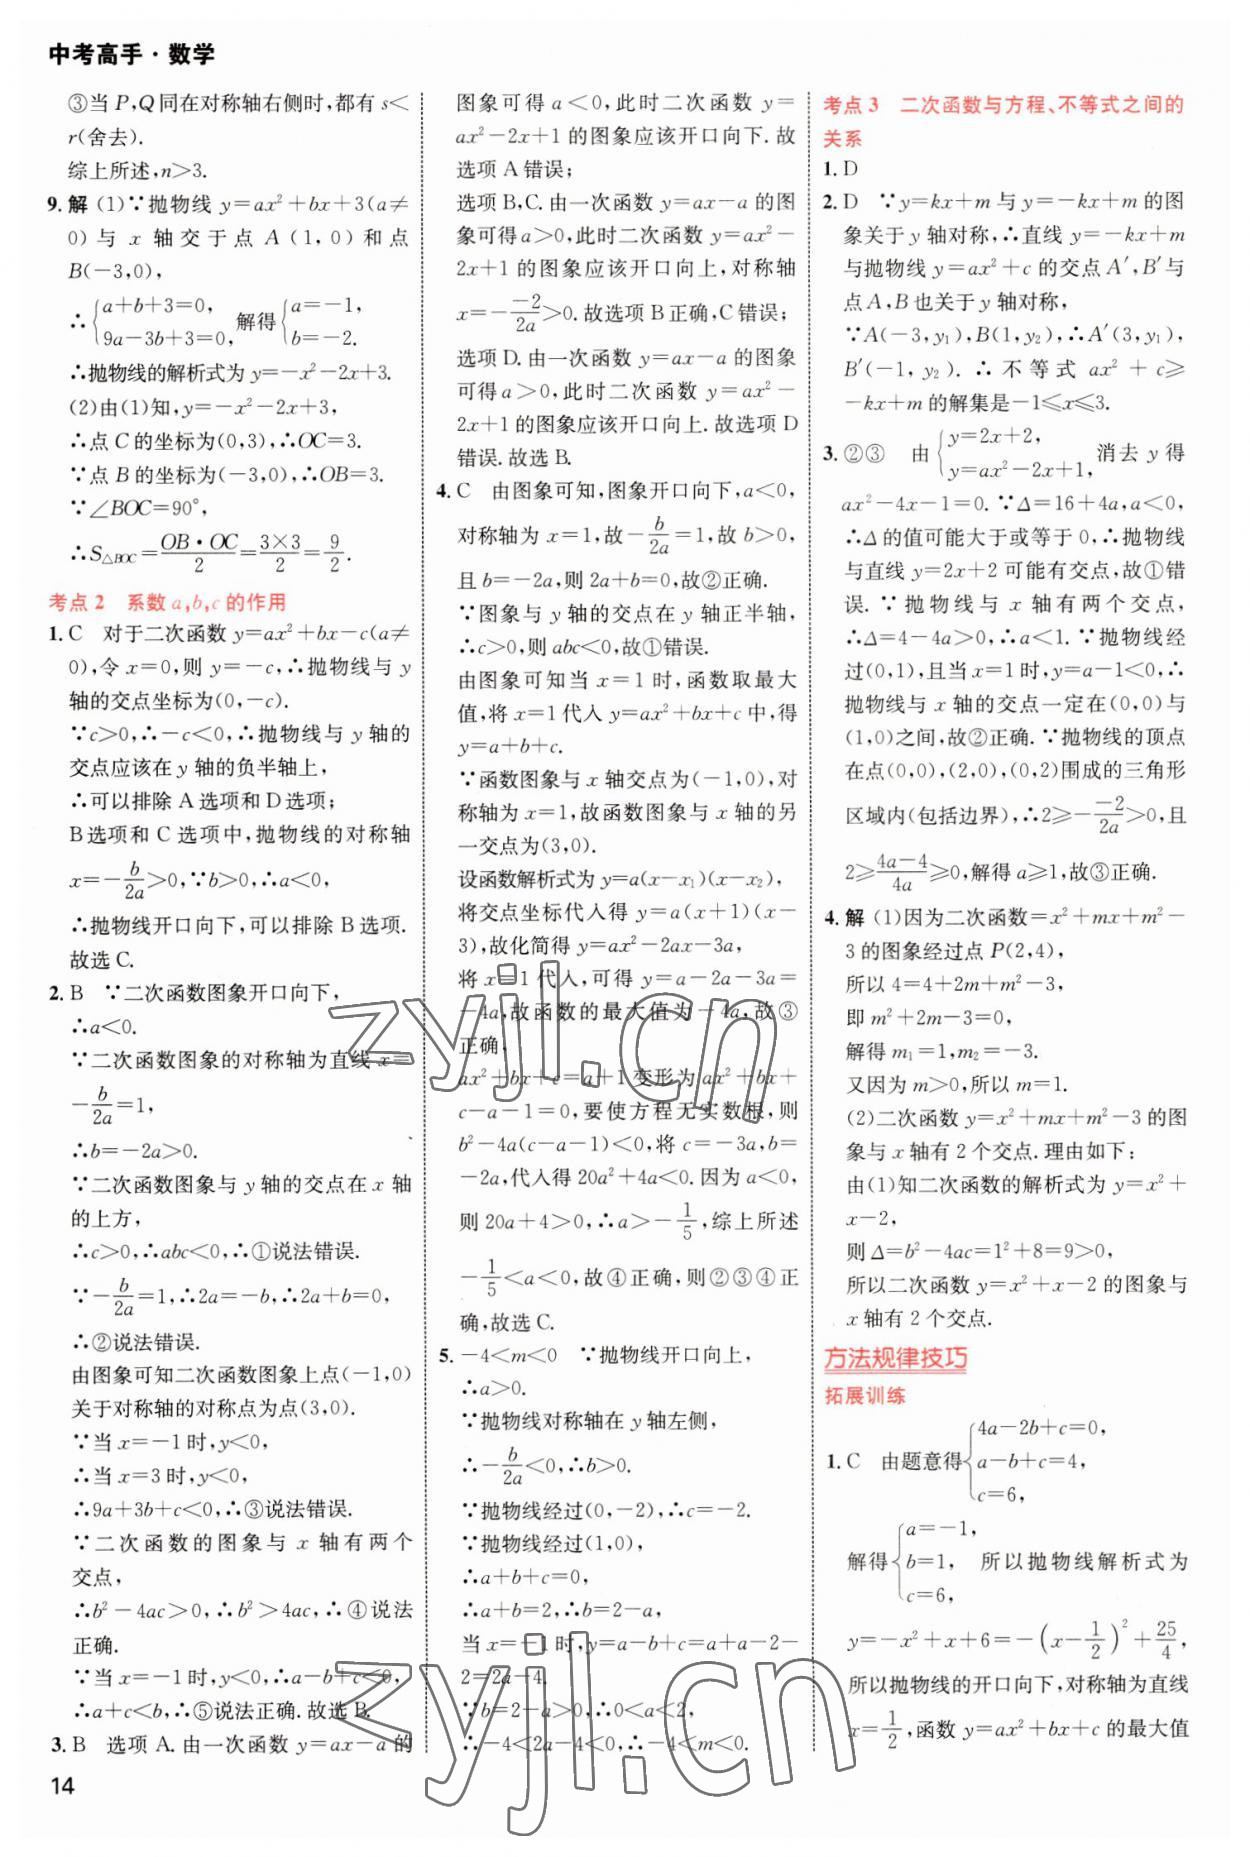 中考高手·数学
③当 P,Q 同在对称轴右侧时,都有 s<
r(舍去).
综上所述,n>3.
9. 解 (1)∵抛物线 y=ax²+bx+3(a≠
0)与 x 轴交于点 A(1,0)和点
B(-3,0),
∴{a+b+3=0, 9a-3b+3=0, 解得{a=-1, b=-2.
∴抛物线的解析式为 y=-x²-2x+3.
(2)由(1)知,y=-x²-2x+3,
∴点 C 的坐标为(0,3),∴OC=3.
∵点 B 的坐标为(-3,0),∴OB=3.
∵∠BOC=90°,
∴S△BOC=OB·OC/2=3×3/2=9/2.
考点 2 系数 a,b,c 的作用
1. C 对于二次函数 y=ax²+bx-c(a≠
0),令 x=0,则 y=-c,∴抛物线与 y
轴的交点坐标为(0,-c).
∵c>0,∴-c<0,∴抛物线与 y 轴的
交点应该在 y 轴的负半轴上,
∴可以排除 A 选项和 D 选项;
B 选项和 C 选项中,抛物线的对称轴
x=-b/2a>0,∵b>0,∴a<0,
∴抛物线开口向下,可以排除 B 选项.
故选 C.
2. B ∵二次函数图象开口向下,
∴a<0.
∵二次函数图象的对称轴为直线 x=
-b/2a=1,
∴b=-2a>0.
∵二次函数图象与 y 轴的交点在 x 轴
的上方,
∴c>0,∴abc<0,∴①说法错误.
∵-b/2a=1,∴2a=-b,∴2a+b=0,
∴②说法错误.
由图象可知二次函数图象上点(-1,0)
关于对称轴的对称点为点(3,0).
∵当 x=-1 时,y<0,
∴当 x=3 时,y<0,
∴9a+3b+c<0,∴③说法错误.
∵二次函数的图象与 x 轴有两个
交点,
∴b²-4ac>0,∴b²>4ac,∴④说法
正确.
∵当 x=-1 时,y<0,∴a-b+c<0,
∴a+c<b,∴⑤说法正确.故选 B.
3. B 选项 A. 由一次函数 y=ax-a 的
14
图象可得 a<0,此时二次函数 y=
ax²-2x+1 的图象应该开口向下.故
选项 A 错误;
选项 B,C. 由一次函数 y=ax-a 的图
象可得 a>0,此时二次函数 y=ax²-
2x+1 的图象应该开口向上,对称轴
x=--2/2a>0.故选项 B 正确,C 错误;
选项 D. 由一次函数 y=ax-a 的图象
可得 a>0,此时二次函数 y=ax²-
2x+1 的图象应该开口向上.故选项 D
错误.故选 B.
4. C 由图象可知,图象开口向下,a<0,
对称轴为 x=1,故-b/2a=1,故 b>0,
且 b=-2a,则 2a+b=0,故②正确.
∵图象与 y 轴的交点在 y 轴正半轴,
∴c>0,则 abc<0,故①错误.
由图象可知当 x=1 时,函数取最大
值,将 x=1 代入 y=ax²+bx+c 中,得
y=a+b+c.
∵函数图象与 x 轴交点为(-1,0),对
称轴为 x=1,故函数图象与 x 轴的另
一交点为(3,0).
设函数解析式为 y=a(x-x₁)(x-x₂),
将交点坐标代入得 y=a(x+1)(x-
3),故化简得 y=ax²-2ax-3a,
将 x=1 代入,可得 y=a-2a-3a=
-4a,故函数的最大值为-4a,故③
正确,
ax²+bx+c=a+1 变形为 ax²+bx+
c-a-1=0,要使方程无实数根,则
b²-4a(c-a-1)<0,将 c=-3a,b=
-2a,代入得 20a²+4a<0.因为 a<0,
则 20a+4>0,∴a>-1/5,综上所述
-1/5<a<0,故④正确,则②③④正
确,故选 C.
5. -4<m<0 ∵抛物线开口向上,
∴a>0.
∵抛物线对称轴在 y 轴左侧,
∴-b/2a<0,∴b>0.
∵抛物线经过(0,-2),∴c=-2.
∵抛物线经过(1,0),
∴a+b+c=0,
∴a+b=2,∴b=2-a,
当 x=-1 时,y=a-b+c=a+a-2-
2=2a-4.
∵b=2-a>0,∴0<a<2,
∴-4<2a-4<0,∴-4<m<0.
考点 3 二次函数与方程、不等式之间的
关系
1. D
2. D ∵y=kx+m 与 y=-kx+m 的图
象关于 y 轴对称,∴直线 y=-kx+m
与抛物线 y=ax²+c 的交点 A′,B′与
点 A,B 也关于 y 轴对称,
∵A(-3,y₁),B(1,y₂),∴A′(3,y₁),
B′(-1,y₂).∴不等式 ax²+c≥
-kx+m 的解集是-1≤x≤3.
3. ②③ 由{y=2x+2, y=ax²-2x+1, 消去 y 得
ax²-4x-1=0.∵Δ=16+4a,a<0,
∴Δ 的值可能大于或等于 0,∴抛物线
与直线 y=2x+2 可能有交点,故①错
误.∵抛物线与 x 轴有两个交点,
∴Δ=4-4a>0,∴a<1.∵抛物线经
过(0,1),且当 x=1 时,y=a-1<0,∴
抛物线与 x 轴的交点一定在(0,0)与
(1,0)之间,故②正确.∵抛物线的顶点
在点(0,0),(2,0),(0,2)围成的三角形
区域内(包括边界),∴2≥--2/2a>0,且
2≥4a-4/4a≥0,解得 a≥1,故③正确.
4. 解 (1)因为二次函数=x²+mx+m²-
3 的图象经过点 P(2,4),
所以 4=4+2m+m²-3,
即 m²+2m-3=0,
解得 m₁=1,m₂=-3.
又因为 m>0,所以 m=1.
(2)二次函数 y=x²+mx+m²-3 的图
象与 x 轴有 2 个交点.理由如下:
由(1)知二次函数的解析式为 y=x²+
x-2,
则 Δ=b²-4ac=1²+8=9>0,
所以二次函数 y=x²+x-2 的图象与
x 轴有 2 个交点.
方法规律技巧
拓展训练
1. C 由题意得{4a-2b+c=0, a-b+c=4, c=6,
解得{a=-1, b=1, c=6, 所以抛物线解析式为
y=-x²+x+6=-(x-1/2)²+25/4,
所以抛物线的开口向下,对称轴为直线
x=1/2,函数 y=ax²+bx+c 的最大值
zyjl.cn
zyjl.cn